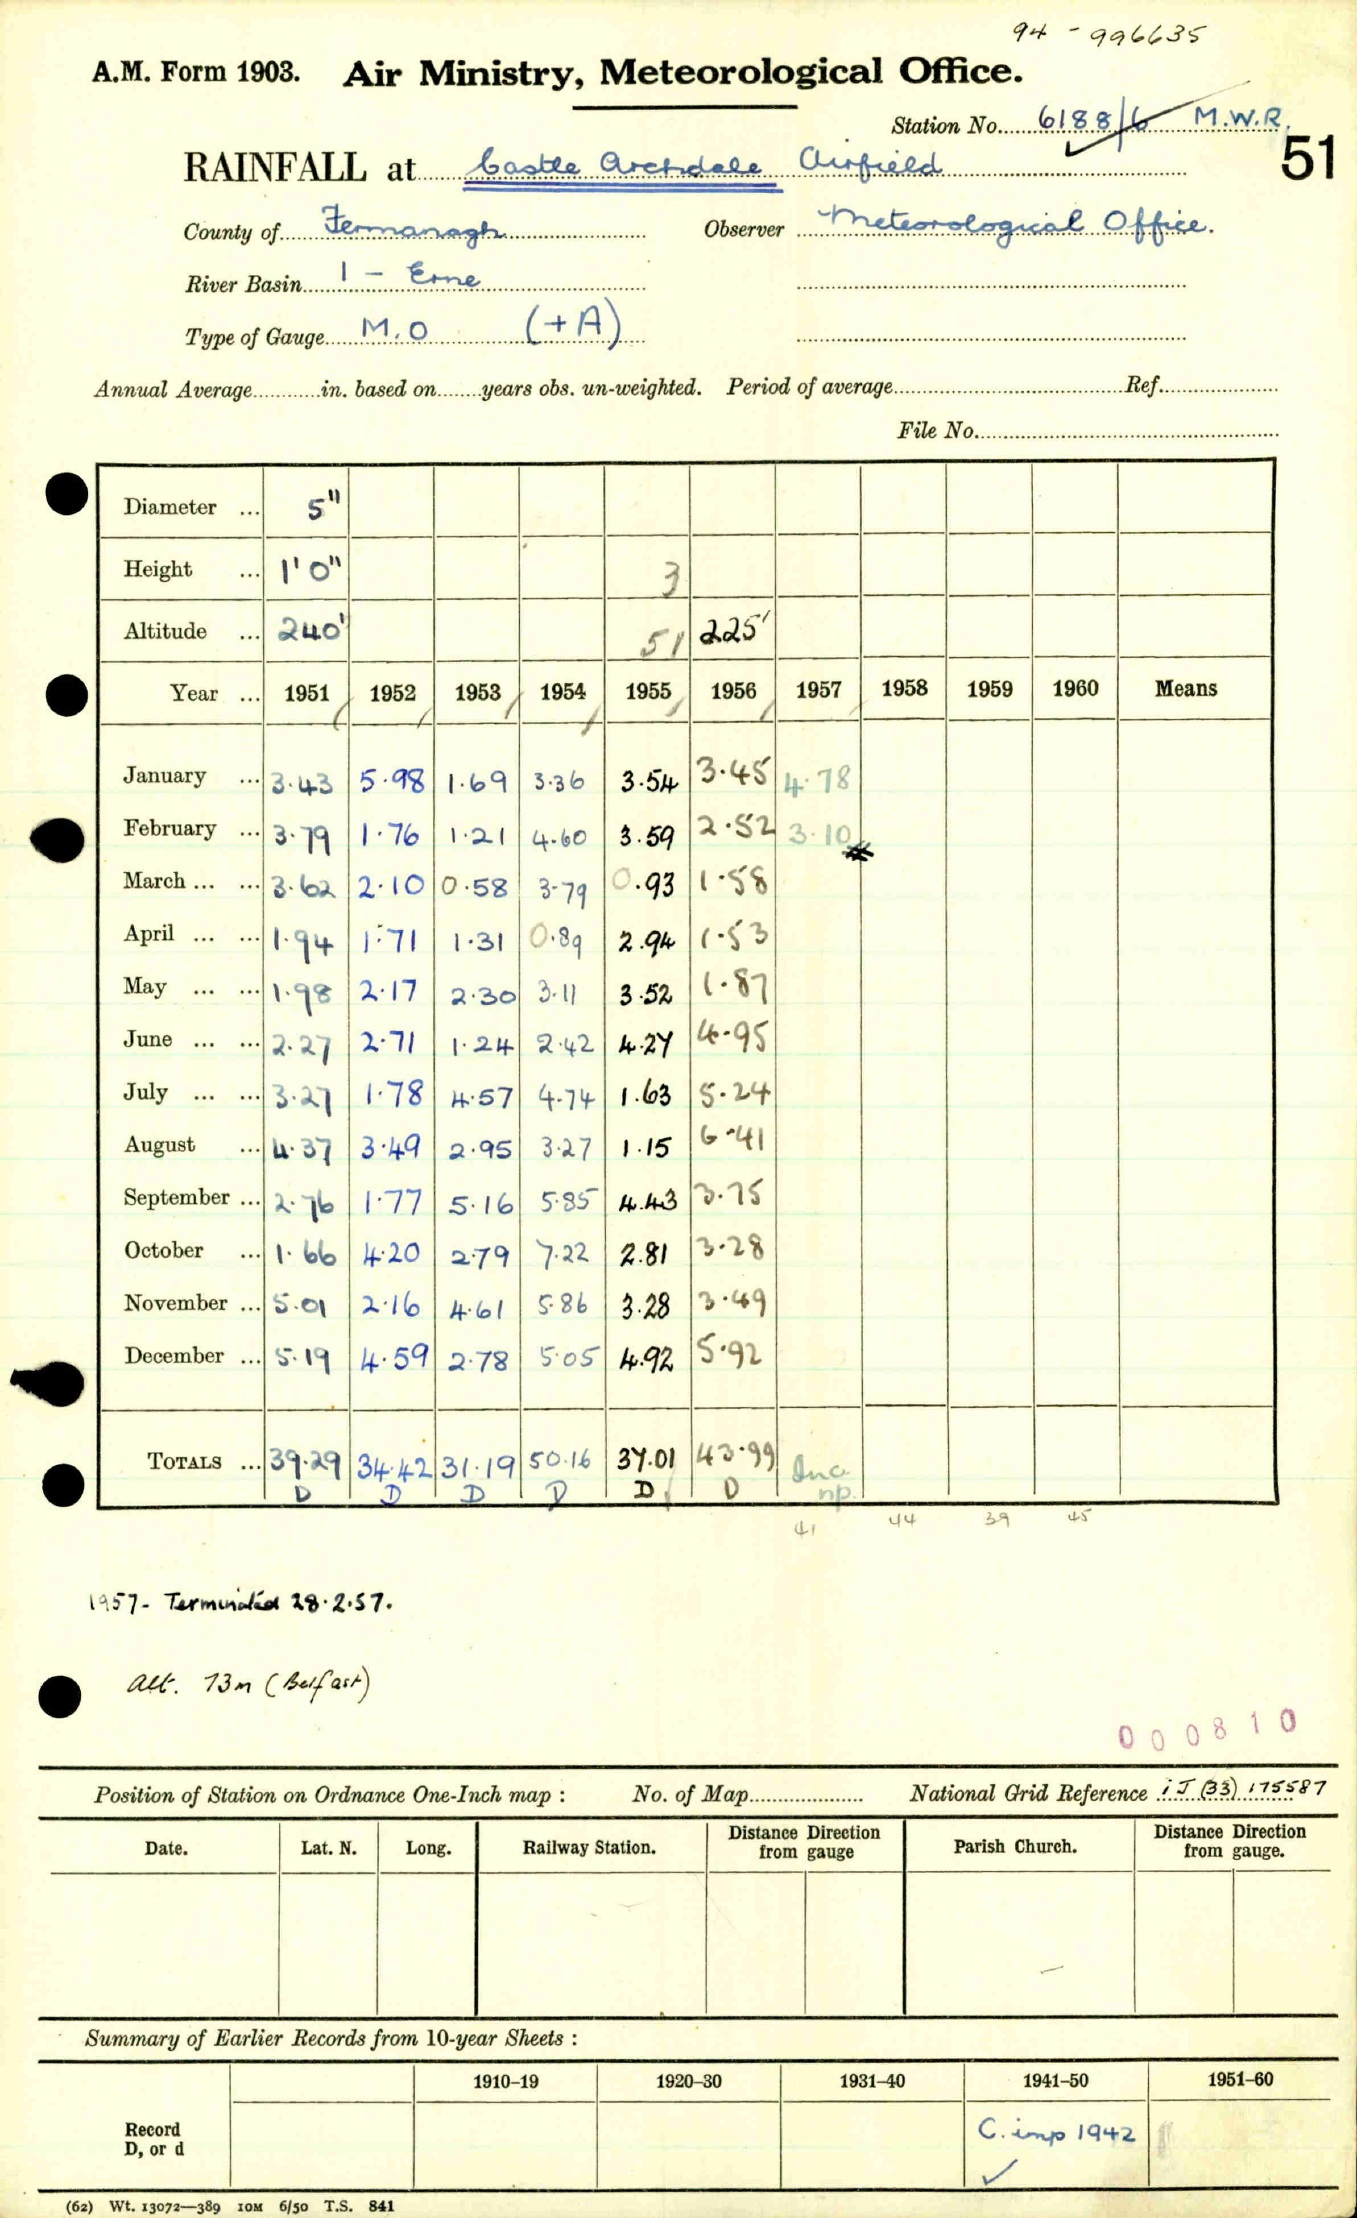 94 - 996635
A.M. Form 1903. Air Ministry, Meteorological Office.
Station No. 6188/6 M.W.R.
RAINFALL at Castle Archdale Airfield 51
County of Fermanagh Observer Meteorological Office.
River Basin 1 - Erne
Type of Gauge M.O (+A)
Annual Average in. based on years obs. un-weighted. Period of average Ref.
File No.
Diameter ... 5"
Height ... 1'0" 3
Altitude ... 240' 51 225'
Year ... 1951 1952 1953 1954 1955 1956 1957 1958 1959 1960 Means
January ... 3.43 5.98 1.69 3.36 3.54 3.45 4.78
February ... 3.79 1.76 1.21 4.60 3.59 2.52 3.10
March ... ... 3.62 2.10 0.58 3.79 0.93 1.58
April ... ... 1.94 1.71 1.31 0.89 2.94 1.53
May ... ... 1.98 2.17 2.30 3.11 3.52 1.87
June ... ... 2.27 2.71 1.24 2.42 4.27 4.95
July ... ... 3.27 1.78 4.57 4.74 1.63 5.24
August ... 4.37 3.49 2.95 3.27 1.15 6.41
September ... 2.76 1.77 5.16 5.85 4.43 3.75
October ... 1.66 4.20 2.79 7.22 2.81 3.28
November ... 5.01 2.16 4.61 5.86 3.28 3.49
December ... 5.19 4.59 2.78 5.05 4.92 5.92
TOTALS ... 39.29 34.42 31.19 50.16 37.01 43.99 Inc
D D D D D D np.
41 44 39 45
1957- Terminated 28.2.57.
Alt. 73m (Belfast)
000810
Position of Station on Ordnance One-Inch map : No. of Map National Grid Reference iJ (33) 175587
Date. Lat. N. Long. Railway Station. Distance from gauge Direction Parish Church. Distance from gauge. Direction
Summary of Earlier Records from 10-year Sheets :
1910–19 1920–30 1931–40 1941–50 1951–60
Record
D, or d
C. imp 1942
(62) Wt. 13072—389 10M 6/50 T.S. 841